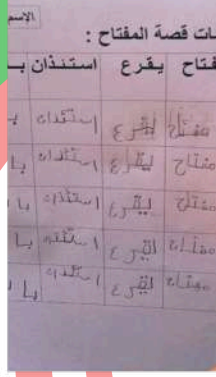 الاسم
ات قصة المفتاح :
فتاح يقرع استئذان بـ
مفتاح يقرع استئذان با
مفتاح يقرع استئذان با
مفتاح يقرع استئذان با
مفتاح يقرع استئذان با
مفتاح يقرع استئذان با